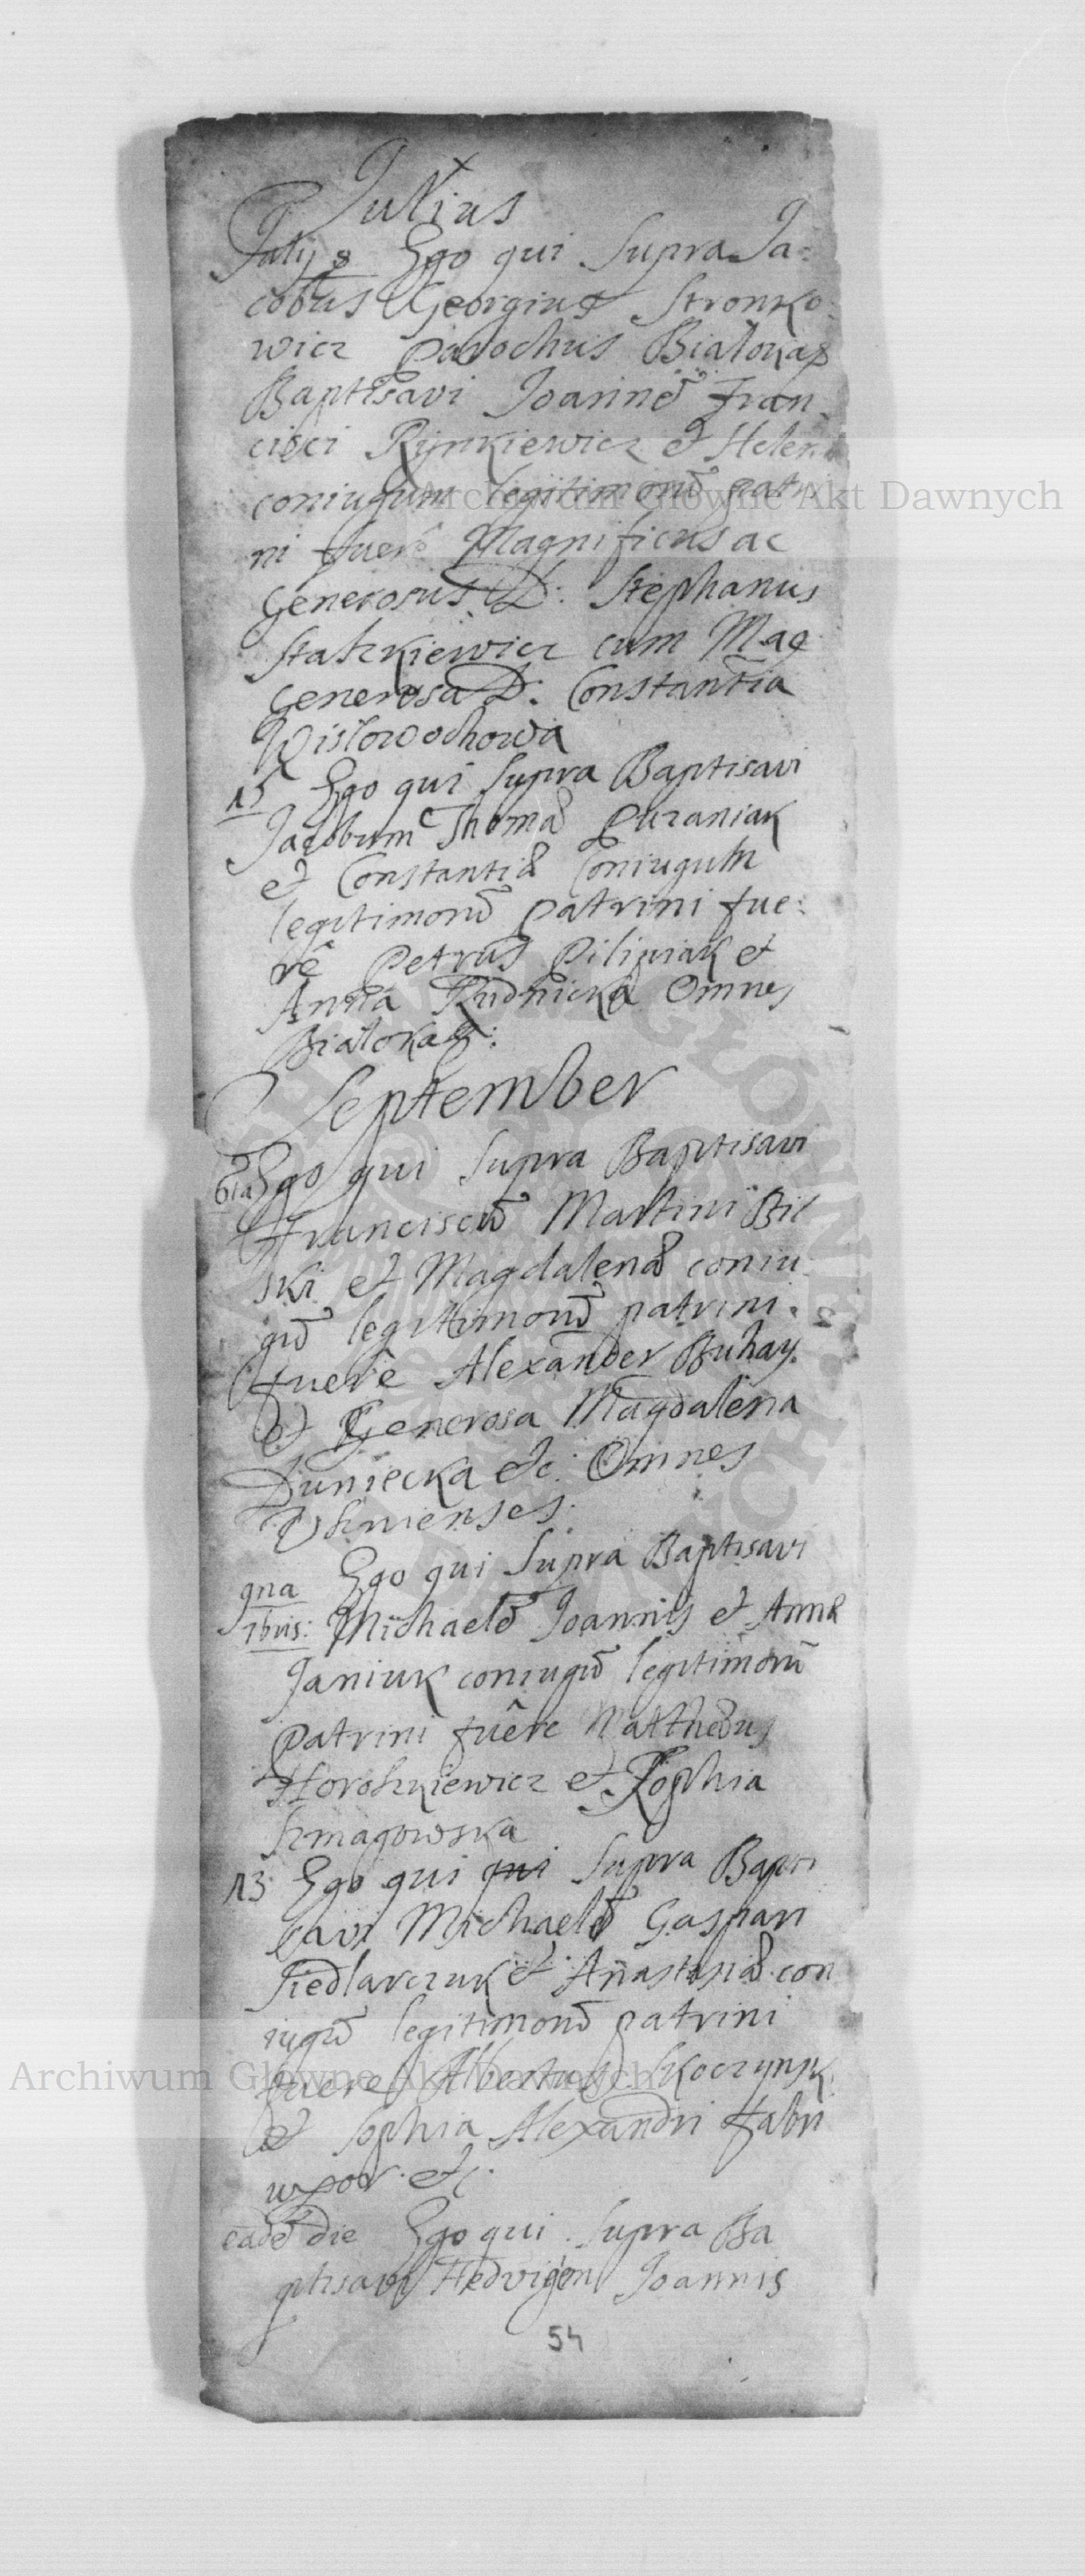 Julius
July 8 Ego qui supra Ja=
cobus Georgius Stronko=
wicz Parochus Białokas
Baptisavi Joannē Fran
cisci Rynkiewicz et Helen
coniugum legitimorū patri
ni fuerē Magnificus ac
Generosus D: Stephanus
Staszkiewicz cum Mag
Generosa D: Constantia
Wisłowochowa
15 Ego qui supra Baptisavi
Jacobum Thomæ Puraniak
et Constantiæ Coniugum
legitimorū patrini fue:
rē Petrus Piliniak et
Anna Rudnicka Omnes
Białokas:
September
6ta Ego qui supra Baptisavi
Franciscū Martini Bil
ski et Magdalenæ coniu
gū legittimorū patrini
fuerê Alexander Buhay
et Generosa Magdalena
Duniecka etc: Omnes

9na Ego qui supra Baptisavi
7bris: Michaelē Joannis et Annæ
Janiuk coniugū legitimorū
patrini fuêre Mattheus
Horoszkiewicz et Zophia
Szmagowska
13 Ego qui qui supra Bapti
savi Michaelē Gaspari
Siedlarczuk et Anastasiæ con
iugū legitimorū patrini
fuere Albertus Skoczynsk
et Sophia Alexandri Fabri
uxor etc.
eadē die Ego qui supra Ba
ptisavi Hedvigem Joannis
54
Archiwum Główne Akt Dawnych
Archiwum Główne Akt Dawnych